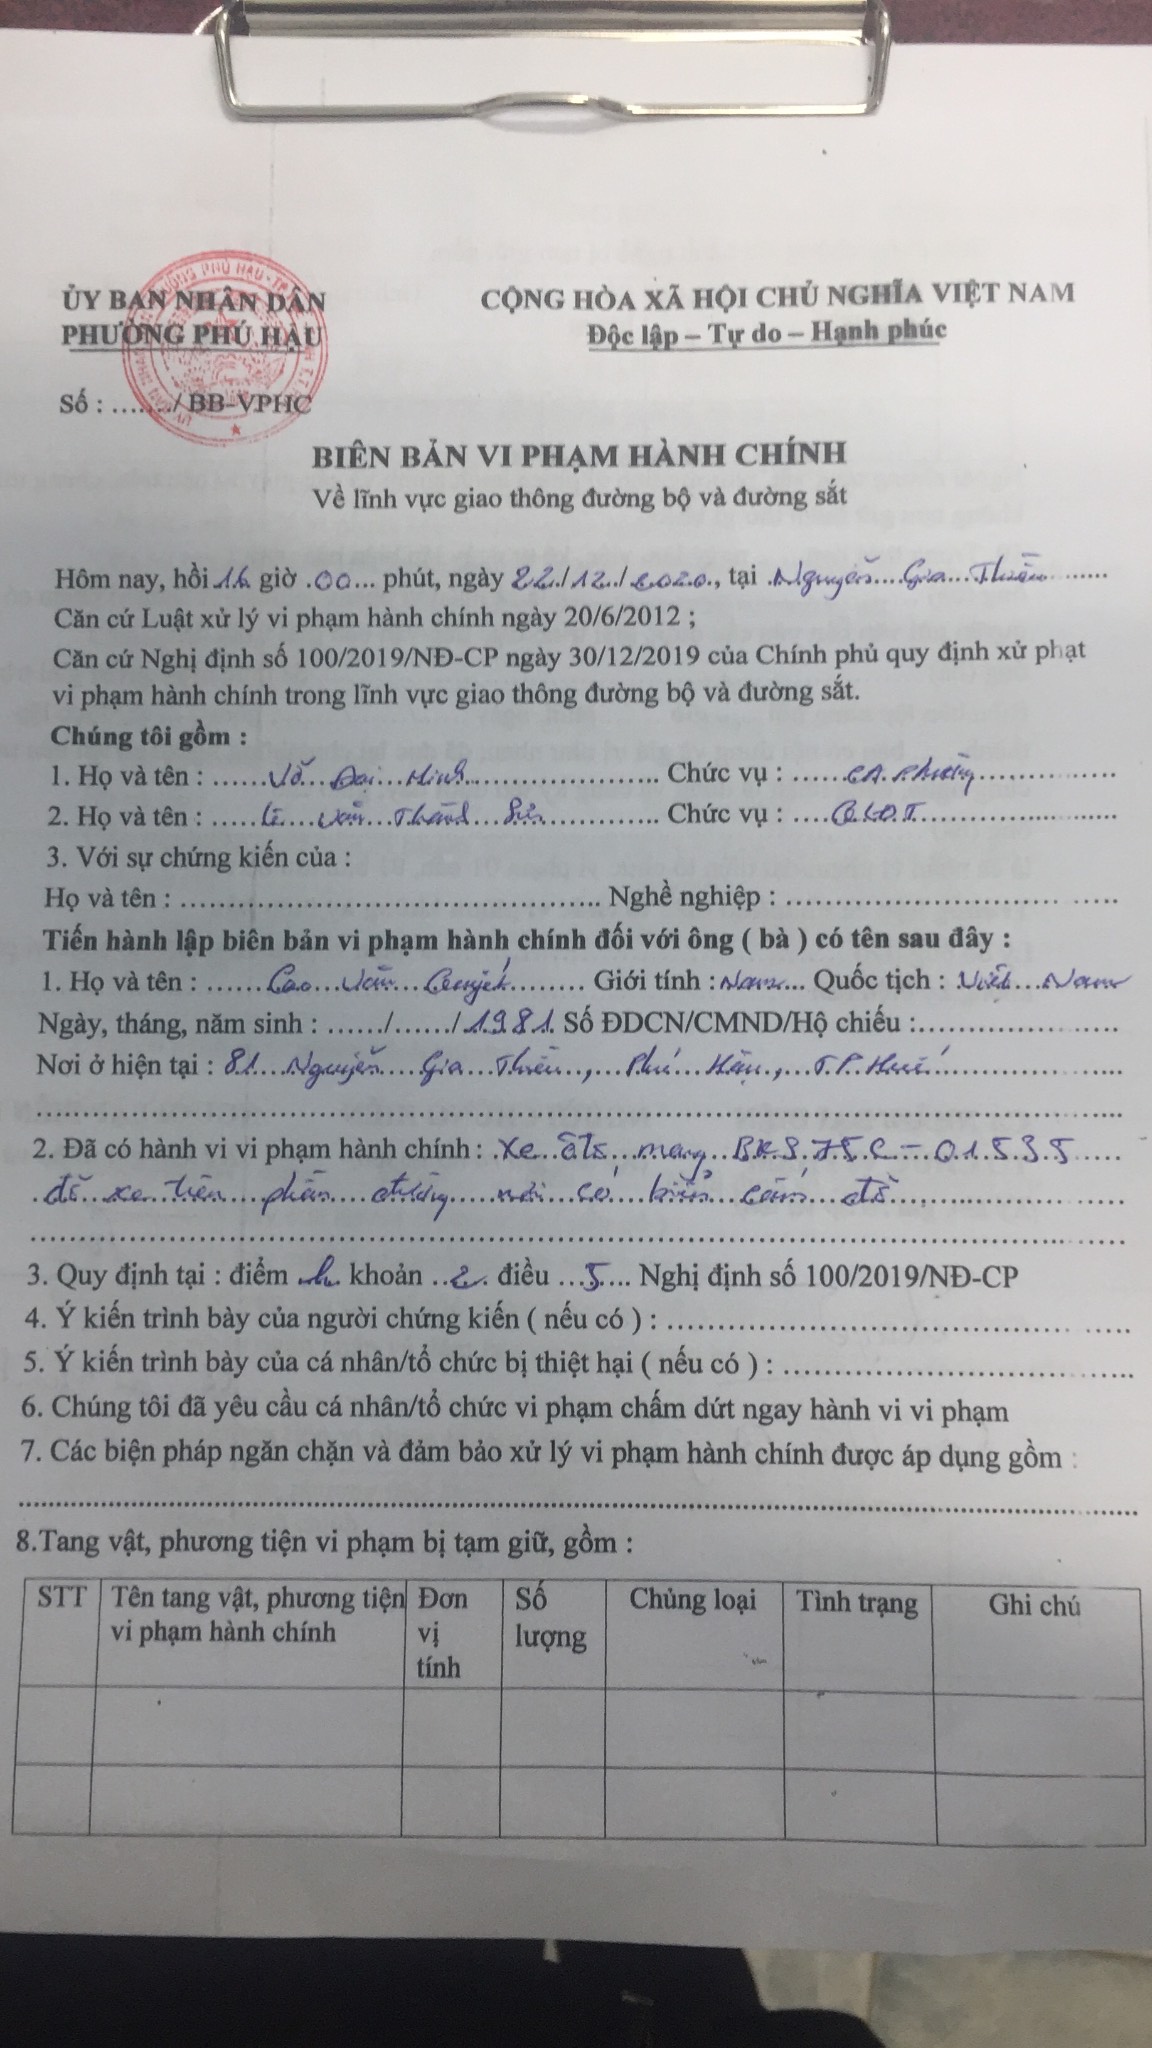 ỦY BAN NHÂN DÂN
PHƯỜNG PHÚ HẬU
CỘNG HÒA XÃ HỘI CHỦ NGHĨA VIỆT NAM
Độc lập – Tự do – Hạnh phúc
Số : ……./ BB-VPHC
BIÊN BẢN VI PHẠM HÀNH CHÍNH
Về lĩnh vực giao thông đường bộ và đường sắt
Hôm nay, hồi 16 giờ .00... phút, ngày 22/12/2020, tại Nguyễn Gia Thiều
Căn cứ Luật xử lý vi phạm hành chính ngày 20/6/2012 ;
Căn cứ Nghị định số 100/2019/NĐ-CP ngày 30/12/2019 của Chính phủ quy định xử phạt
vi phạm hành chính trong lĩnh vực giao thông đường bộ và đường sắt.
Chúng tôi gồm :
1. Họ và tên : Võ Đại Minh Chức vụ : CA. Phường
2. Họ và tên : Lê Văn Thành Chức vụ :
3. Với sự chứng kiến của :
Họ và tên : ……………… Nghề nghiệp : ………………
Tiến hành lập biên bản vi phạm hành chính đối với ông ( bà ) có tên sau đây :
1. Họ và tên : Cao Văn Giới tính : Nam Quốc tịch : Việt Nam
Ngày, tháng, năm sinh : ……/……/1981. Số ĐDCN/CMND/Hộ chiếu :………………
Nơi ở hiện tại : 81 Nguyễn Gia Thiều, Phú Hậu, T.P Huế
2. Đã có hành vi vi phạm hành chính : Xe ôtô mang BKS 75C – 01535
đỗ xe trên phần đường nơi có biển cấm đỗ
3. Quy định tại : điểm h khoản 2 điều 5 Nghị định số 100/2019/NĐ-CP
4. Ý kiến trình bày của người chứng kiến ( nếu có ) : ………………
5. Ý kiến trình bày của cá nhân/tổ chức bị thiệt hại ( nếu có ) : ………………
6. Chúng tôi đã yêu cầu cá nhân/tổ chức vi phạm chấm dứt ngay hành vi vi phạm
7. Các biện pháp ngăn chặn và đảm bảo xử lý vi phạm hành chính được áp dụng gồm :
8.Tang vật, phương tiện vi phạm bị tạm giữ, gồm :
STT Tên tang vật, phương tiện Đơn Số Chủng loại Tình trạng Ghi chú
vi phạm hành chính vị lượng
tính